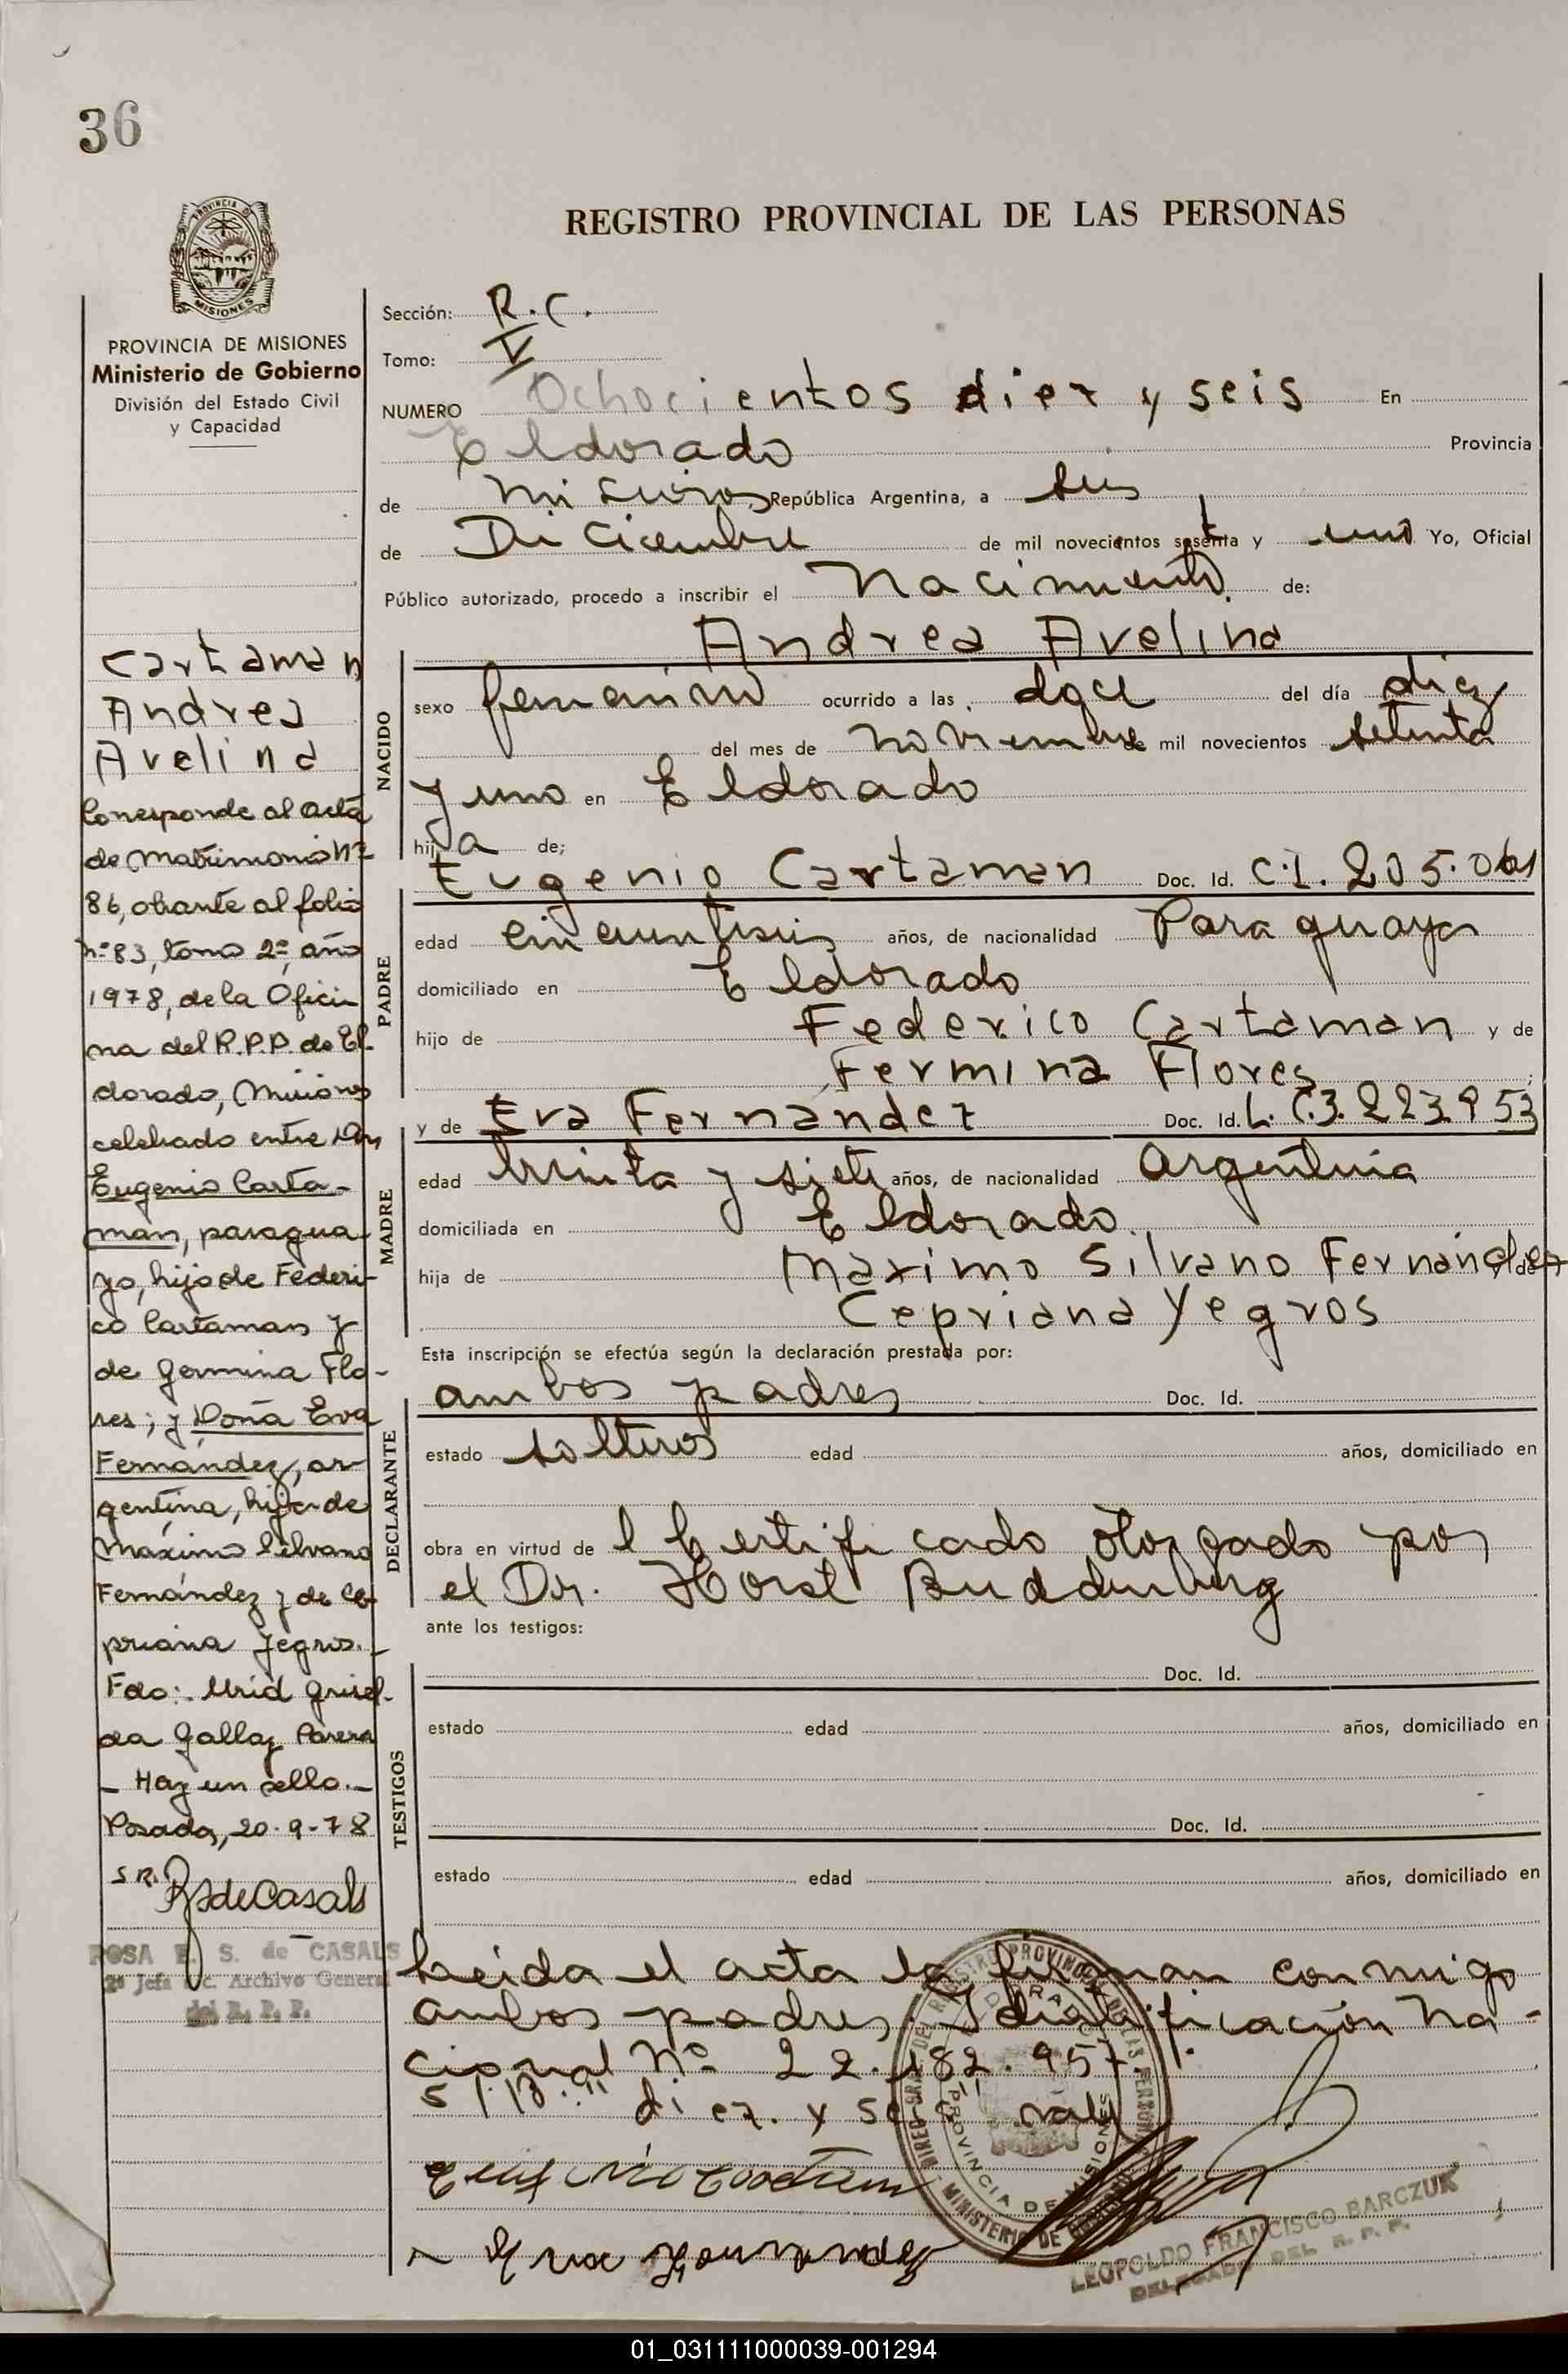 36
REGISTRO PROVINCIAL DE LAS PERSONAS
PROVINCIA DE
MISIONES
PROVINCIA DE MISIONES
Ministerio de Gobierno
División del Estado Civil
y Capacidad
Cartaman
Andrea
Avelina
Corresponde al acta
de Matrimonio Nº
86, obrante al folio
nº 83, tomo 2º, año
1978, de la Ofici
na del R.P.P. de El-
dorado, Misiones
celebrado entre Don
Eugenio Carta-
man, paragua
yo, hijo de Federi-
co Cartaman y
de Germina Flo-
res; y Doña Eva
Fernández, ar-
gentina, hija de
Máximo Silvano
Fernández y de Ce-
priana Yegros.-
Fdo: Grisel-
da Gallaz
- Hay un sello.-
Posadas, 20-9-78
S.R.
RSdeCasals
ROSA E. S. de CASALS
2º Jefa Sc. Archivo General
del R. P. P.
Sección: R.C.
Tomo: V
NUMERO Ochocientos diez y seis En
Eldorado Provincia
de Misiones República Argentina, a seis
de Diciembre de mil novecientos setenta y uno Yo, Oficial
Público autorizado, procedo a inscribir el Nacimiento de:
Andrea Avelina
NACIDO
sexo femenino ocurrido a las doce del día diez
del mes de noviembre de mil novecientos setenta
y uno en Eldorado
hija de;
PADRE
Eugenio Cartaman Doc. Id. C.I. 205.061
edad cincuentiseis años, de nacionalidad Paraguaya
domiciliado en Eldorado
hijo de Federico Cartaman y de
Fermina Flores;
MADRE
y de Eva Fernandez Doc. Id. L.C.3.223953
edad treinta y siete años, de nacionalidad Argentina
domiciliada en Eldorado
hija de Maximo Silvano Fernández y de
Cepriana Yegros
Esta inscripción se efectúa según la declaración prestada por:
DECLARANTE
ambos padres Doc. Id.
estado solteros edad años, domiciliado en
obra en virtud de l Certificado otorgado por
el Dr. Horst Buddenberg
ante los testigos:
TESTIGOS
Doc. Id.
estado edad años, domiciliado en
Doc. Id.
estado edad años, domiciliado en
Leida el acta la firman conmigo
ambos padres. Identificación Na-
cional Nº 22.182.957.
S/B: "diez y seis" vale
Eva Fernandez
DIREC. GRAL. DEL REGISTRO PROVINCIAL DE LAS PERSONAS
ELDORADO
PROVINCIA DE MISIONES
MINISTERIO DE GOBIERNO
LEOPOLDO FRANCISCO BARCZUK
DELEGADO DEL R. P. P.
01_031111000039-001294